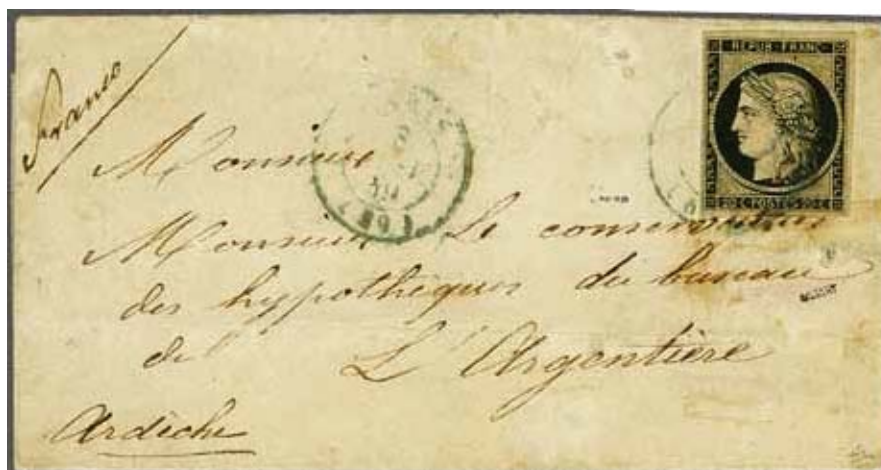 Franco
REPUB FRANC
20 c POSTES 20 c
Monsieur
Monsieur Le conservateur
des hypothèques du bureau
de L'Argentière
Ardèche